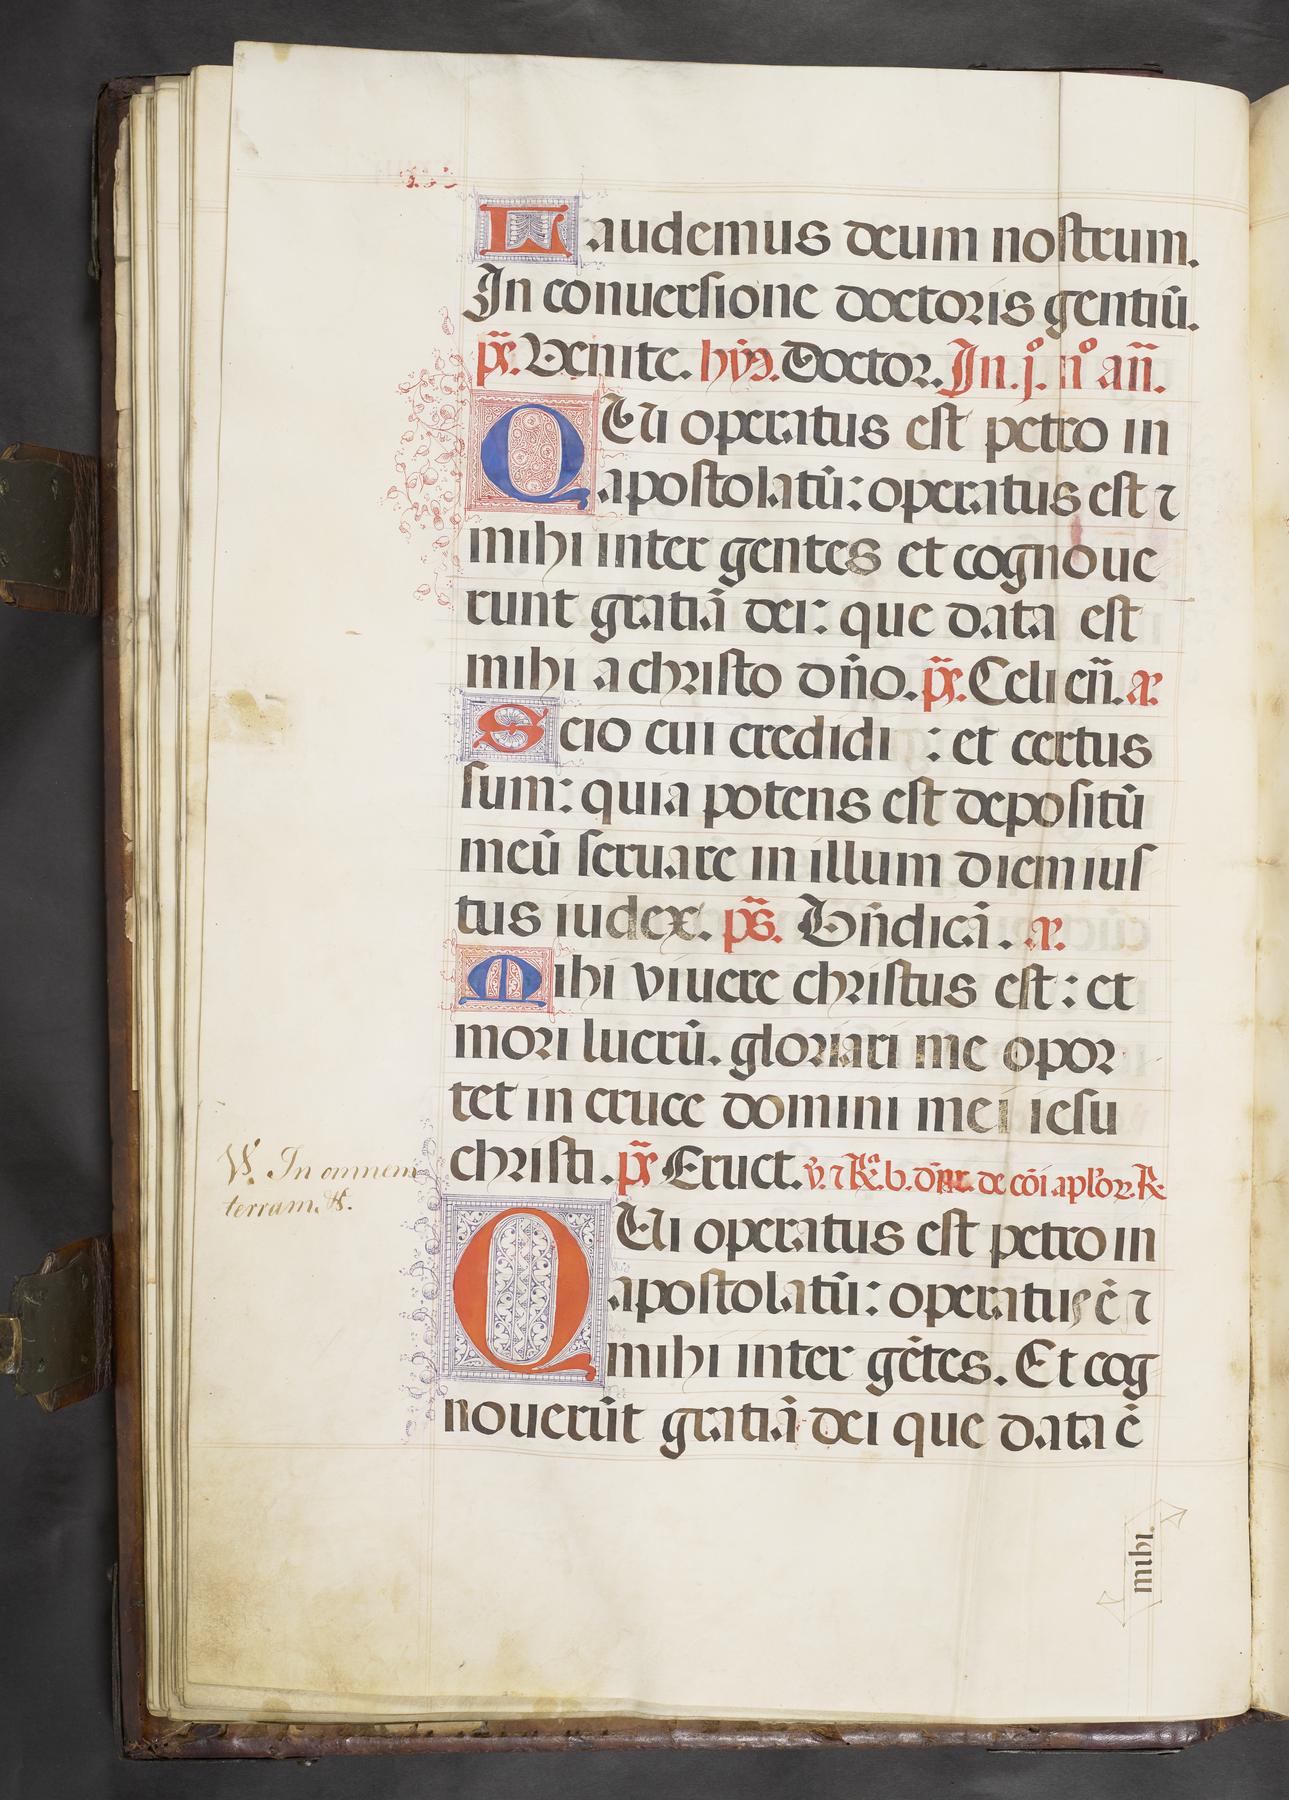 Laudemus deum nostrum.
In conuersione doctoris gentiū.
ps̄. Venite. hyn̄. Doctor. In .j. n° an̄.
QUi operatus est petro in
apostolatū: operatus est ⁊
mihi inter gentes et cognoue
runt gratiā dei: que data est
mihi a christo dn̄o. ps̄. Celi en̄. a.
Scio cui credidi : et certus
sum: quia potens est depositū
meū seruare in illum diem ius
tus iudex. ps̄. Bn̄dicā. a.
Mihi viuere christus est: et
mori lucrū. gloriari me opor
tet in cruce domini mei iesu
christi. ps̄ Eruct. v̄. ⁊ ℞. b. de cōi aplōr. ℞
W. In omnem
terram. &.
QUi operatus est petro in
apostolatū: operatus ē ⁊
mihi inter gētes. Et cog
nouerūt gratiā dei que data ē
mihi.